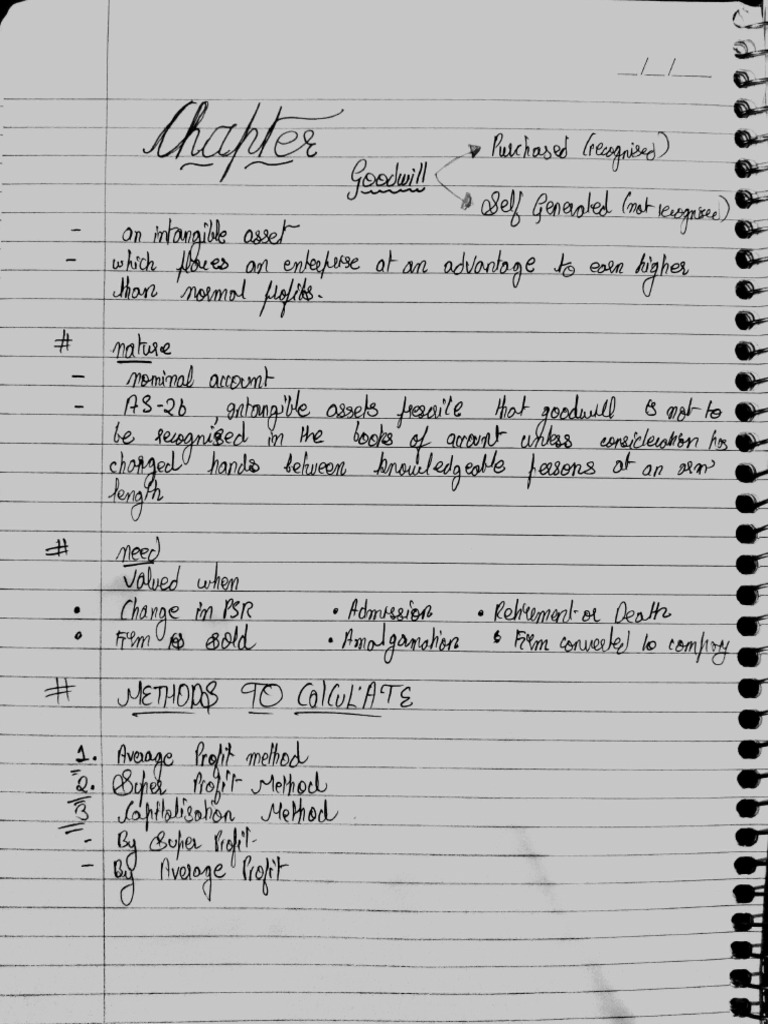 __/__/____
Chapter
Goodwill
Purchased (recognised)
Self Generated (not recognised)
- an intangible asset
- which places an enterprise at an advantage to earn higher
than normal profits.
# nature
- nominal account
- AS-26, intangible assets prescribe that goodwill is not to
be recognised in the books of account unless consideration has
changed hands between knowledgeable persons at an arm'
length
# need
valued when
• Change in PSR • Admission • Retirement or Death
• Firm is sold • Amalgamation • Firm converted to company
# METHODS TO CALCULATE
1. Average Profit method
2. Super Profit Method
3 Capitalisation Method
- By Super Profit
- By Average Profit